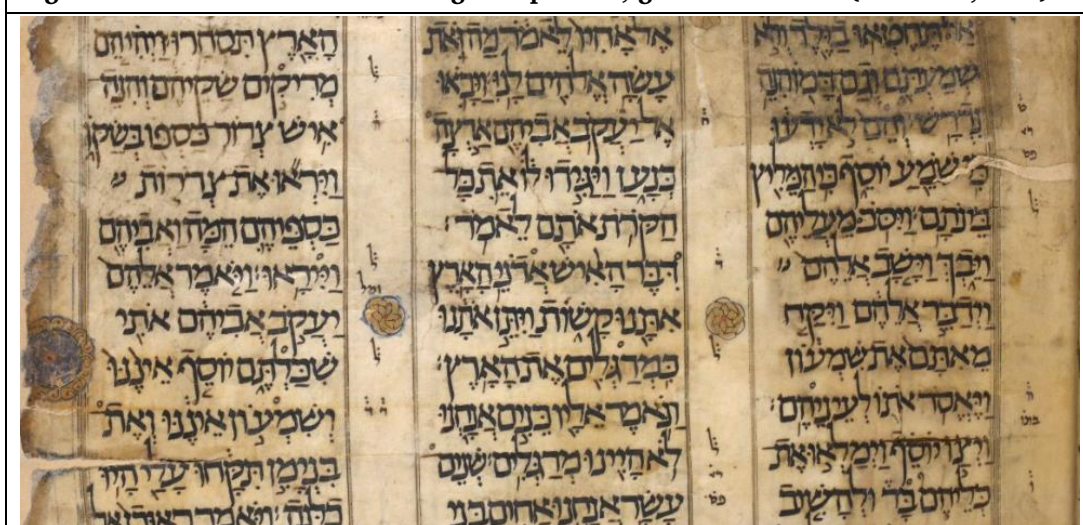 אַל תֶּחֶטְאוּ בַיֶּלֶד וְלֹא
שְׁמַעְתֶּם וְגַם דָּמוֹ הִנֵּה
נִדְרָשׁ וְהֵם לֹא יָדְעוּ
כִּי שֹׁמֵעַ יוֹסֵף כִּי הַמֵּלִיץ
בֵּינֹתָם וַיִּסֹּב מֵעֲלֵיהֶם
וַיֵּבְךְּ וַיָּשָׁב אֲלֵהֶם
וַיְדַבֵּר אֲלֵהֶם וַיִּקַּח
מֵאִתָּם אֶת שִׁמְעוֹן
וַיֶּאֱסֹר אֹתוֹ לְעֵינֵיהֶם
וַיְצַו יוֹסֵף וַיְמַלְאוּ אֶת
כְּלֵיהֶם בָּר וּלְהָשִׁיב
אֶל אָחִיו לֵאמֹר מַה זֹּאת
עָשָׂה אֱלֹהִים לָנוּ וַיָּבֹאוּ
אֶל יַעֲקֹב אֲבִיהֶם אַרְצָה
כְּנָעַן וַיַּגִּידוּ לוֹ אֵת כָּל
הַקֹּרֹת אֹתָם לֵאמֹר
דִּבֶּר הָאִישׁ אֲדֹנֵי הָאָרֶץ
אִתָּנוּ קָשׁוֹת וַיִּתֵּן אֹתָנוּ
כִּמְרַגְּלִים אֶת הָאָרֶץ
וַנֹּאמֶר אֵלָיו כֵּנִים אֲנָחְנוּ
לֹא הָיִינוּ מְרַגְּלִים שְׁנֵים
עָשָׂר אֲנַחְנוּ אַחִים בְּנֵי
הָאָרֶץ תִּסְחָרוּ וַיְהִי הֵם
מְרִיקִים שַׂקֵּיהֶם וְהִנֵּה
אִישׁ צְרוֹר כַּסְפּוֹ בְּשַׂקּוֹ
וַיִּרְאוּ אֶת צְרֹרוֹת
כַּסְפֵּיהֶם הֵמָּה וַאֲבִיהֶם
וַיִּירָאוּ וַיֹּאמֶר אֲלֵהֶם
יַעֲקֹב אֲבִיהֶם אֹתִי
שִׁכַּלְתֶּם יוֹסֵף אֵינֶנּוּ
וְשִׁמְעוֹן אֵינֶנּוּ וְאֶת
בִּנְיָמִן תִּקָּחוּ עָלַי הָיוּ
כֻלָּנָה וַיֹּאמֶר רְאוּבֵן אֶל